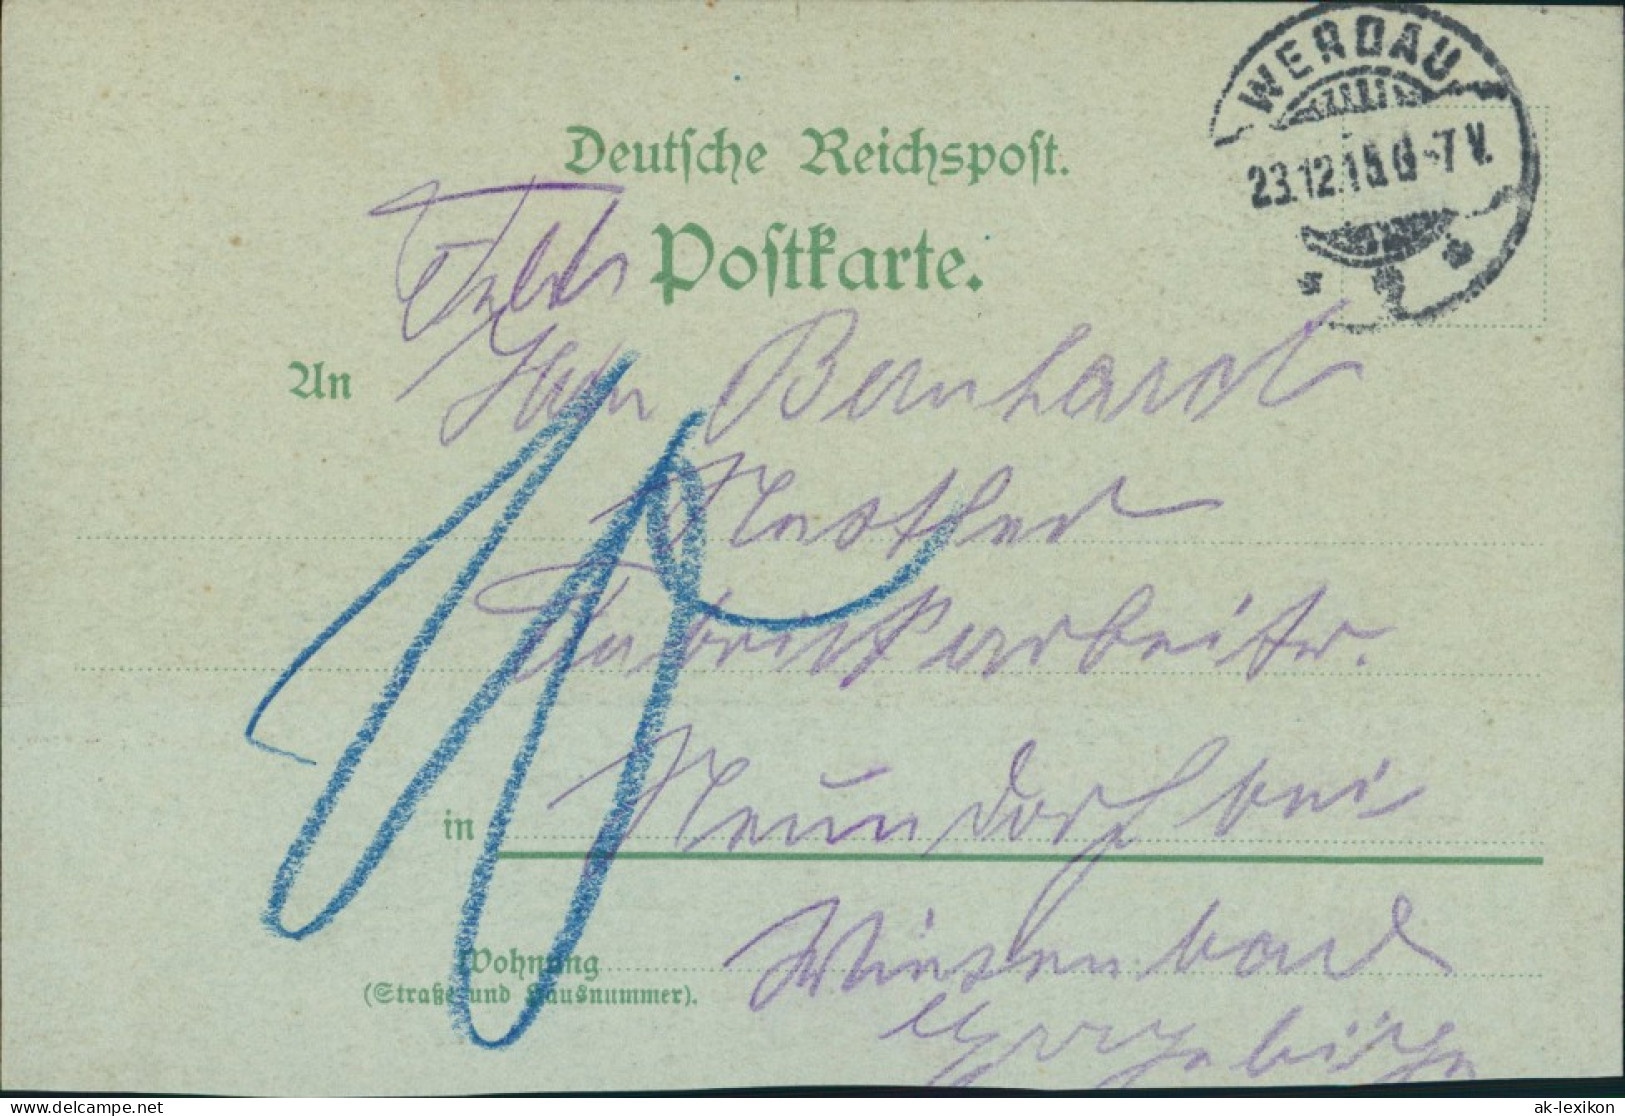 WERDAU
23.12.15.6-7 V.
Deutsche Reichspost.
Postkarte.
An
Herrn Bernhardt
Fabrikarbeiter.
in Neundorf bei
Wohnung
(Straße und Hausnummer).
Wiesenbad
Erzgebirge
delcampe.net
ak-lexikon